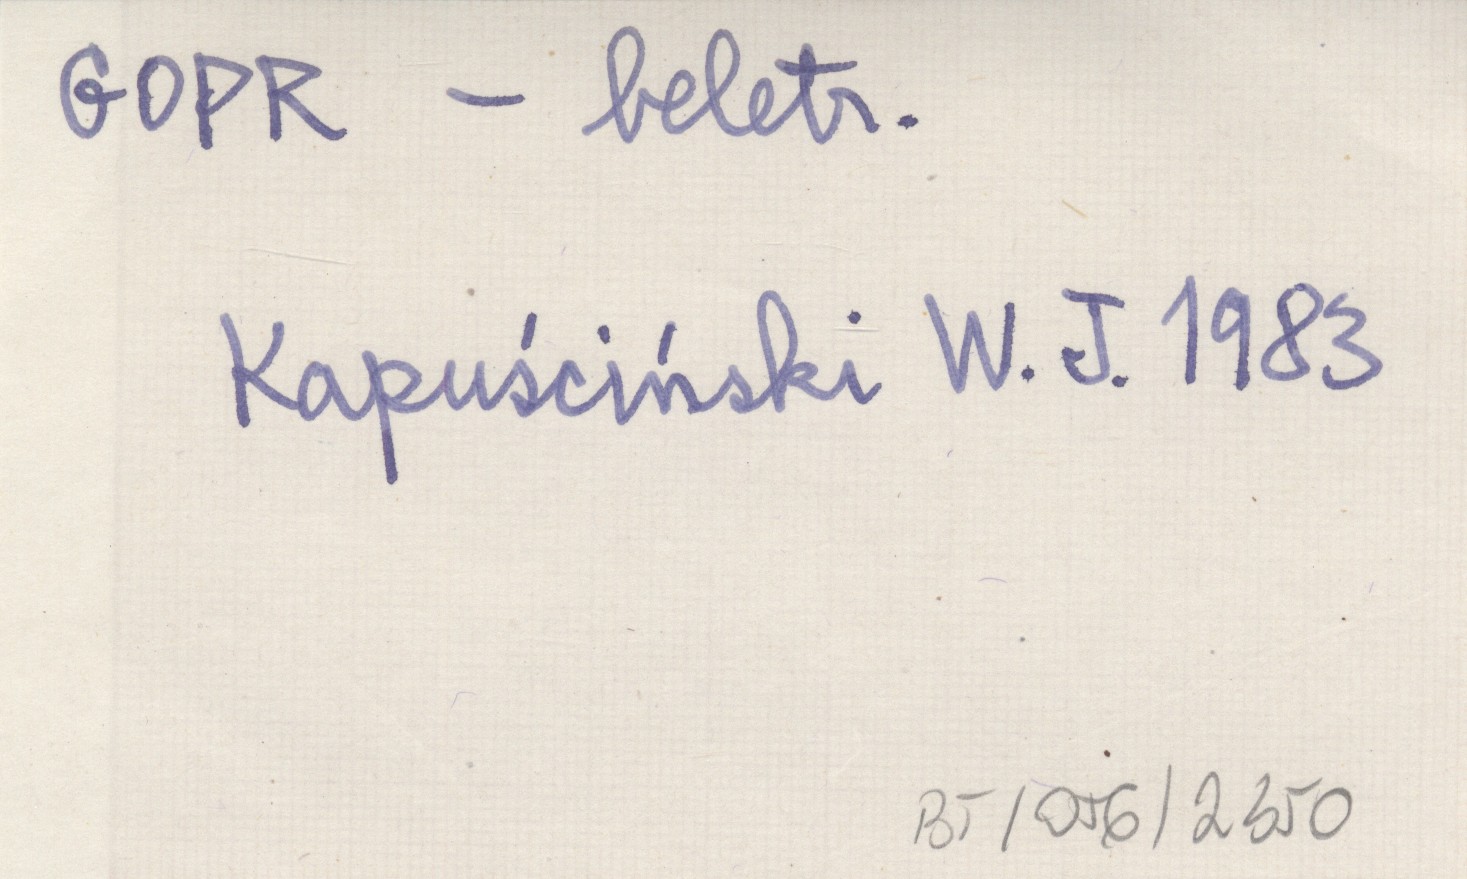 GOPR – beletr.
Kapuściński W. J. 1983
BT/056/2350